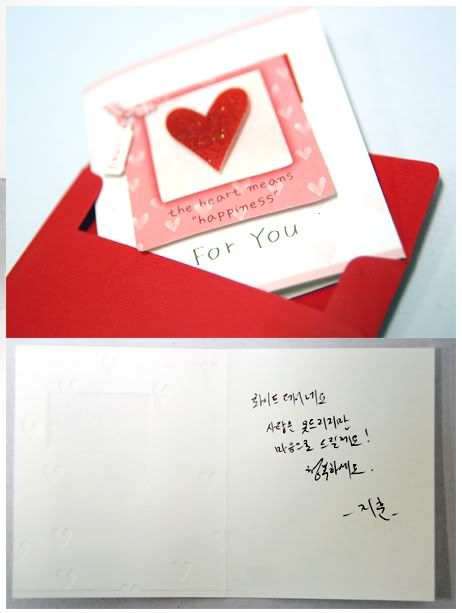 the heart means
"happiness"
For You
화이트 데이네요
사탕은 못드리지만
마음으로 드릴께요!
행복하세요.